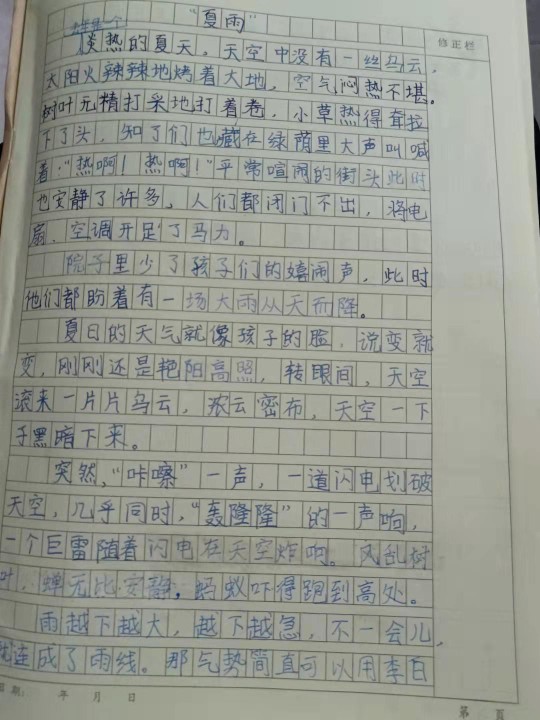 "夏雨"
修正栏
炎热的夏天，天空中没有一丝乌云，
太阳火辣辣地烤着大地，空气闷热不堪。
树叶无精打采地打着卷，小草热得耷拉
下了头，知了们也藏在绿荫里大声叫喊
着："热啊！热啊！"平常喧闹的街头此时
也安静了许多，人们都闭门不出，将电
扇、空调开足了马力。
院子里少了孩子们的嬉闹声，此时
他们都盼着有一场大雨从天而降。
夏日的天气就像孩子的脸，说变就
变，刚刚还是艳阳高照，转眼间，天空
滚来一片片乌云，浓云密布，天空一下
子黑暗下来。
突然，"咔嚓"一声，一道闪电划破
天空，几乎同时，"轰隆隆"的一声响，
一个巨雷随着闪电在天空炸响。风乱树
叶，蝉无比安静，蚂蚁吓得跑到高处。
雨越下越大，越下越急，不一会儿，
就连成了雨线。那气势简直可以用李白
日期： 年 月 日
第 页